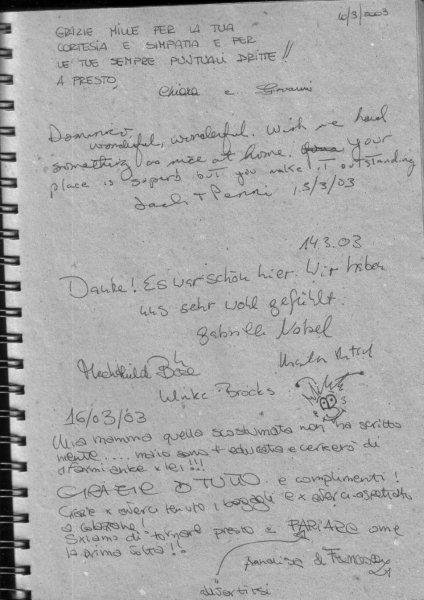 10/3/2003
GRAZIE MILLE PER LA TUA
CORTESIA E SIMPATIA E PER
LE TUE SEMPRE PUNTUALI DRITTE!!
A PRESTO,
Chiara e Giovanni
Domenico
wonderful, wonderful. Wish we had
something as nice at home. Your
place is superb but you make it outstanding
Jack + Penni 13/3/03
14.3.03
Danke! Es war schön hier. Wir haben
uns sehr wohl gefühlt.
Gabriella Nobel
Mechthild Böse
Ulrike Brocks
16/03/03
Mia mamma quella scostumata non ha scritto
niente.... ma io sono + educata e cercherò di
farmi anke x lei!!!
GRAZIE DI TUTTO e complimenti!
Grazie x averci tenuto i bagagli e x averci aspettato
a colazione!
Speriamo di tornare presto e PARIARE come
la prima volta!!
Annalisa & Francesca
divertirsi